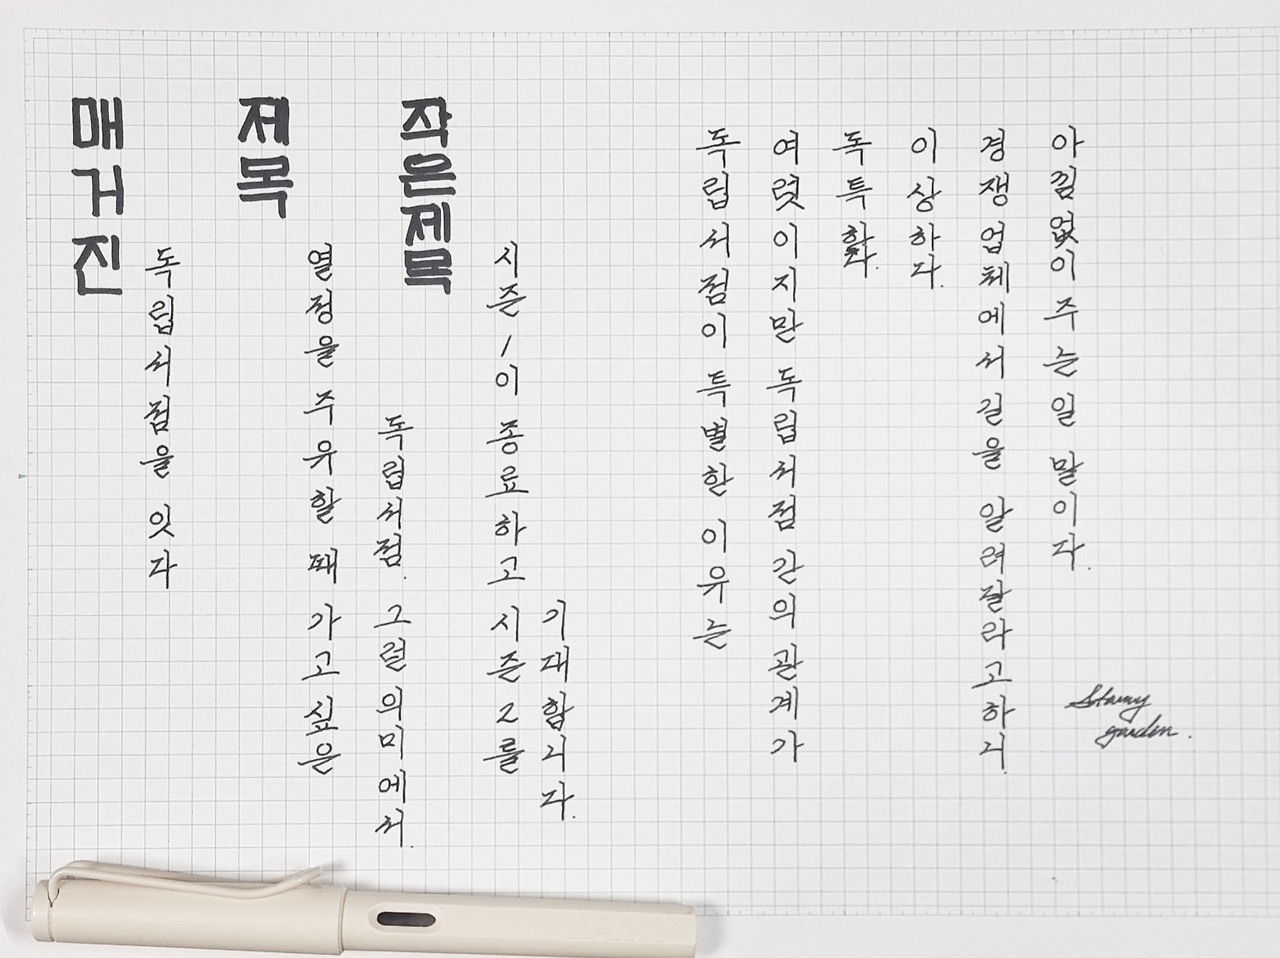 매거진
독립서점을 잇다
제목
열정을 주유할 때 가고 싶은
독립서점. 그런 의미에서.
작은제목
시즌 1이 종료하고 시즌 2를
기대합니다.
독립서점이 특별한 이유는
여럿이지만 독립서점 간의 관계가
독특하다.
이상하다.
경쟁업체에서 길을 알려달라고하니
아낌없이 주는 일 말이다.
Stamy
garden.